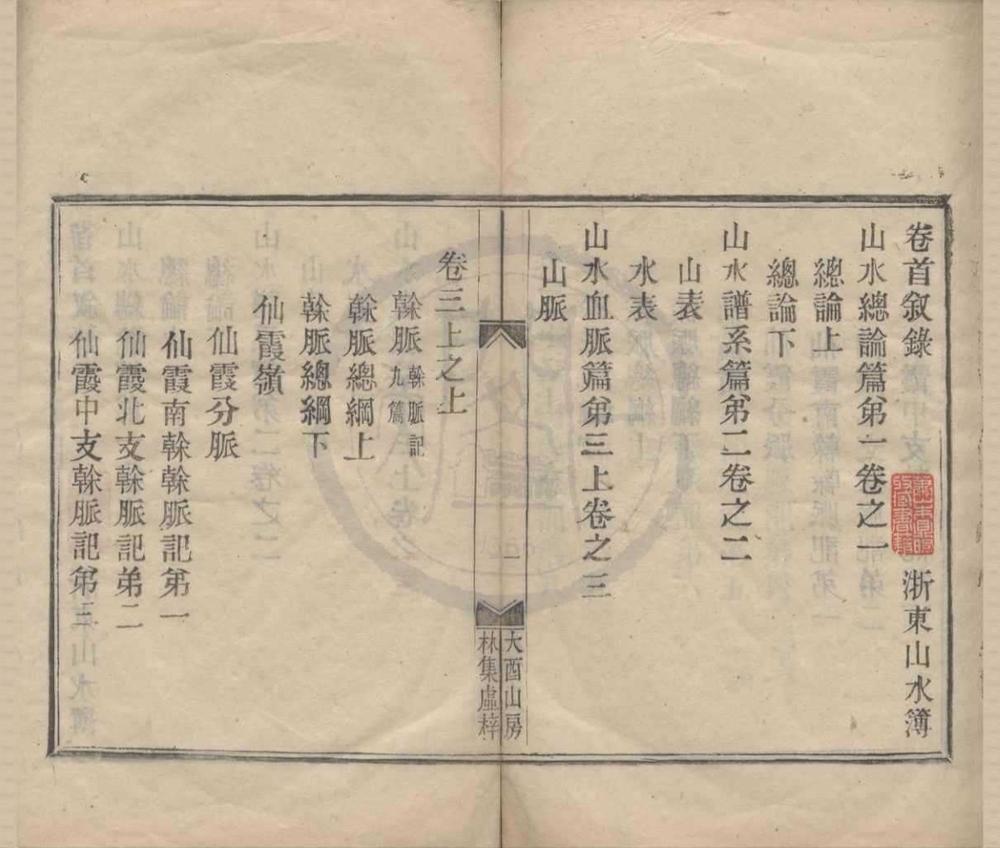 卷首敘錄　浙東山水簿
山水總論篇弟一卷之一
總論上
總論下
山水譜系篇弟二卷之二
山表
水表
山水血脈篇弟三上卷之三
山脈
一
大酉山房
林集虛梓
卷三上之上
榦脈榦脈記九篇
榦脈總綱上
榦脈總綱下
仙霞嶺
仙霞分脈
仙霞南榦榦脈記第一
仙霞北支榦脈記弟二
仙霞中支榦脈記弟三